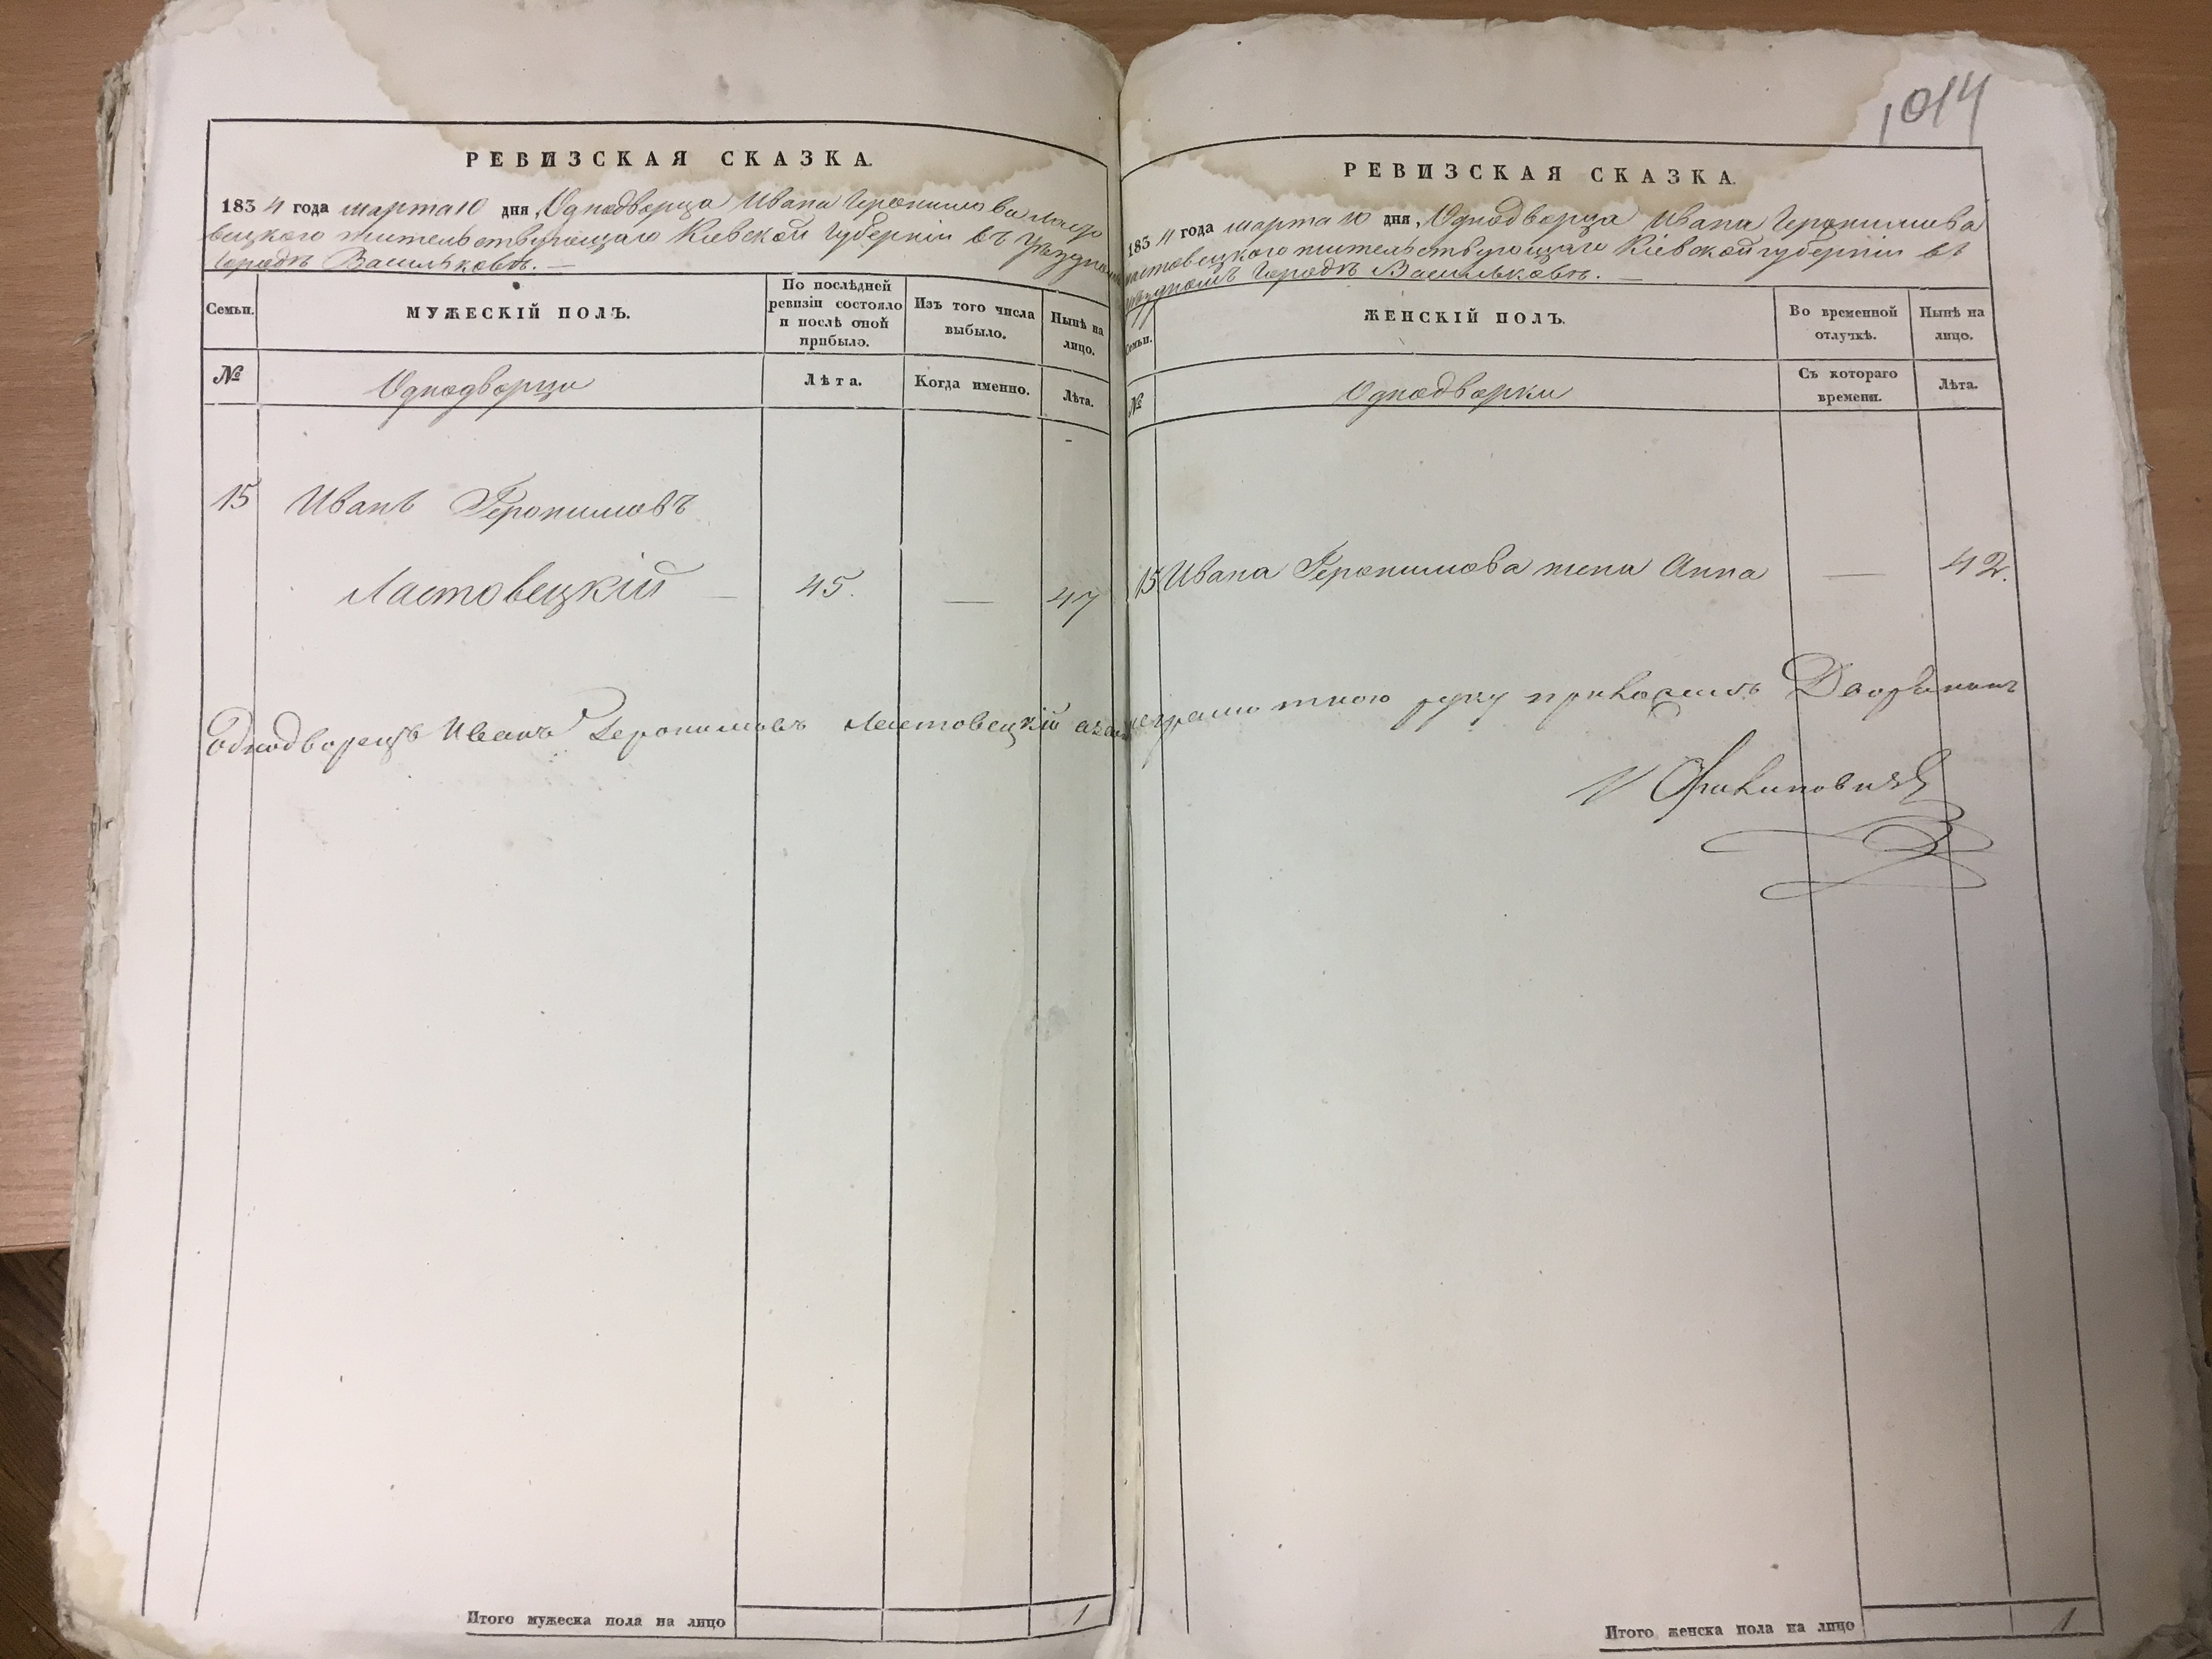 1014
РЕВИЗСКАЯ СКАЗКА.
1834 года марта 10 дня, Однодворца Ивана Іеронимова Ласто
вецкого жительствующаго Кіевской Губерніи въ Уѣздномъ
Городѣ Васильковѣ. —
Семьи.
МУЖЕСКІЙ ПОЛЪ.
По послѣдней ревизіи состояло и послѣ оной прибыло.
Изъ того числа выбыло.
Нынѣ на лицо.
№
Однодворцы
Лѣта.
Когда именно.
Лѣта.
15 Иванъ Іеронимовъ
Ластовецкій — 45. — 47
Однодворецъ Иванъ Іеронимовъ Ластовецкій а за
Итого мужеска пола на лицо 1
РЕВИЗСКАЯ СКАЗКА.
1834 года марта 10 дня, Однодворца Ивана Іеронимова
Ластовецкого жительствующаго Кіевской губерніи въ
Уѣздномъ Городѣ Васильковѣ. —
Семьи.
ЖЕНСКІЙ ПОЛЪ.
Во временной отлучкѣ.
Нынѣ на лицо.
№
Однодворки
Съ котораго времени.
Лѣта.
15 Ивана Іеронимова жена Анна — 42.
руку приложилъ Дворянинъ
Итого женска пола на лицо 1